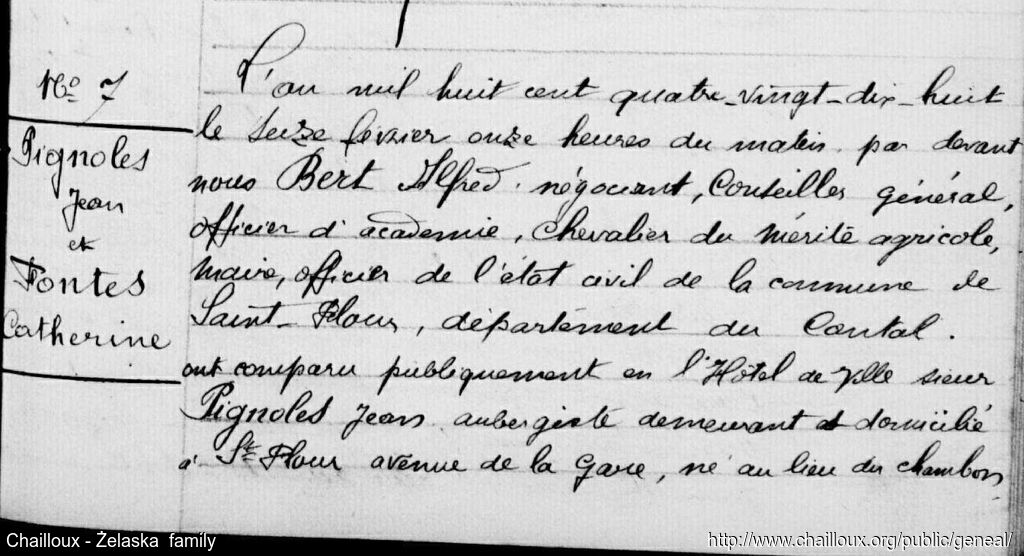 No 7
Pignoles
Jean
et
Fontes
Catherine
L'an mil huit cent quatre-vingt-dix-huit
le seize fevrier onze heures du matin par devant
nous Bert Alfred négociant, Conseiller général,
officier d'academie, Chevalier du Mérite agricole,
Maire, officier de l'état civil de la commune de
Saint-Flour, département du Cantal.
ont comparu publiquement en l'Hôtel de Ville sieur
Pignoles Jean aubergiste demeurant et domicilié
à St Flour avenue de la Gare, né au lieu du chambon
Chailloux - Želaska family
http://www.chailloux.org/public/geneal/